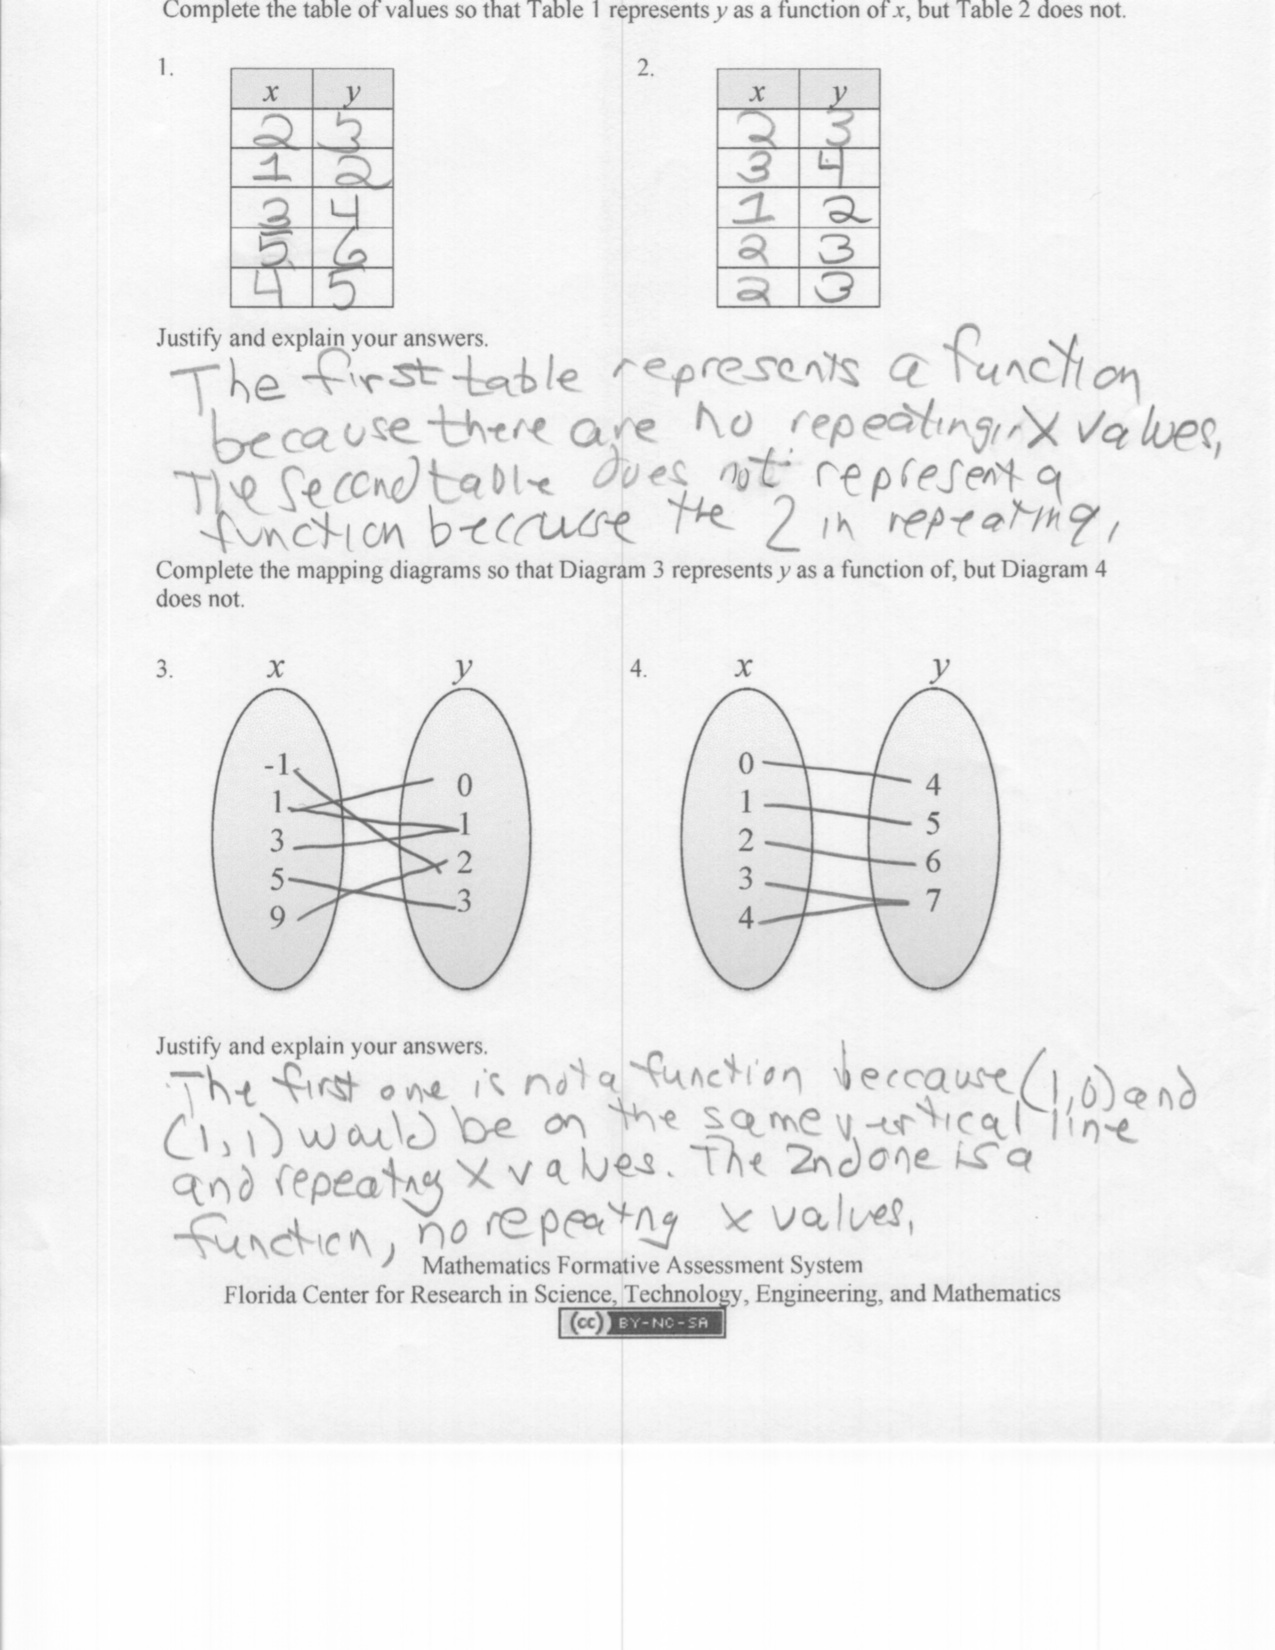 Complete the table of values so that Table 1 represents y as a function of x, but Table 2 does not.
1. 2.
x y x y
2 3 2 3
1 2 3 4
3 4 1 2
5 6 2 3
4 5 2 3
Justify and explain your answers.
The first table represents a function
because there are no repeating x values,
The second table does not represent a
function beccause the 2 in repeating,
Complete the mapping diagrams so that Diagram 3 represents y as a function of, but Diagram 4
does not.
3. x y 4. x y
-1 0 0 4
1 1 1 5
3 2 2 6
5 3 3 7
9 4
Justify and explain your answers.
The first one is not a function beccause (1,0) and
(1,1) would be on the same vertical line
and repeatng x values. The 2nd one is a
function, no repeatng x values,
Mathematics Formative Assessment System
Florida Center for Research in Science, Technology, Engineering, and Mathematics
(cc) BY-NC-SA